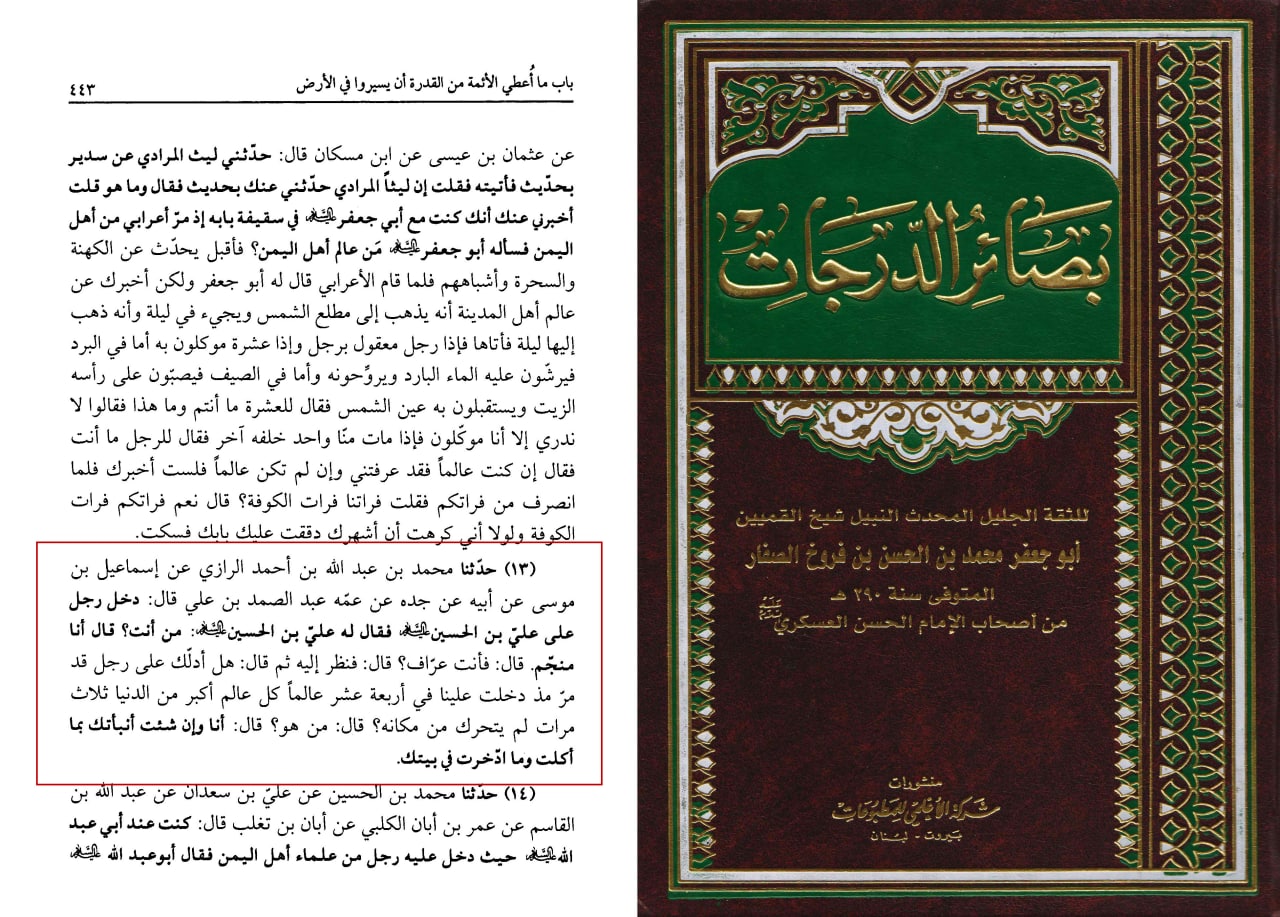 باب ما أُعطي الأئمة من القدرة أن يسيروا في الأرض
٤٤٣
عن عثمان بن عيسى عن ابن مسكان قال: حدّثني ليث المرادي عن سدير
بحدّيث فأتيته فقلت إن ليثاً المرادي حدّثني عنك بحديث فقال وما هو قلت
أخبرني عنك أنك كنت مع أبي جعفر عليه السلام في سقيفة بابه إذ مرّ أعرابي من أهل
اليمن فسأله أبو جعفر عليه السلام مَن عالم أهل اليمن؟ فأقبل يحدّث عن الكهنة
والسحرة وأشباههم فلما قام الأعرابي قال له أبو جعفر ولكن أخبرك عن
عالم أهل المدينة أنه يذهب إلى مطلع الشمس ويجيء في ليلة وأنه ذهب
إليها ليلة فأتاها فإذا رجل معقول برجل وإذا عشرة موكلون به أما في البرد
فيرشّون عليه الماء البارد ويروِّحونه وأما في الصيف فيصبّون على رأسه
الزيت ويستقبلون به عين الشمس فقال للعشرة ما أنتم وما هذا فقالوا لا
ندري إلا أنا موكّلون فإذا مات منّا واحد خلفه آخر فقال للرجل ما أنت
فقال إن كنت عالماً فقد عرفتني وإن لم تكن عالماً فلست أخبرك فلما
انصرف من فراتكم فقلت فراتنا فرات الكوفة؟ قال نعم فراتكم فرات
الكوفة ولولا أني كرهت أن أشهرك دققت عليك بابك فسكت.
(١٣) حدّثنا محمد بن عبد الله بن أحمد الرازي عن إسماعيل بن
موسى عن أبيه عن جده عن عمّه عبد الصمد بن علي قال: دخل رجل
على عليّ بن الحسين عليه السلام فقال له عليّ بن الحسين عليه السلام: من أنت؟ قال أنا
منجّم. قال: فأنت عرّاف؟ قال: فنظر إليه ثم قال: هل أدلّك على رجل قد
مرّ مذ دخلت علينا في أربعة عشر عالماً كل عالم أكبر من الدنيا ثلاث
مرات لم يتحرك من مكانه؟ قال: من هو؟ قال: أنا وإن شئت أنبأتك بما
أكلت وما ادّخرت في بيتك.
(١٤) حدّثنا محمد بن الحسين عن عليّ بن سعدان عن عبد الله بن
القاسم عن عمر بن أبان الكلبي عن أبان بن تغلب قال: كنت عند أبي عبد
الله عليه السلام حيث دخل عليه رجل من علماء أهل اليمن فقال أبو عبد الله عليه السلام
بصائر الدرجات
للثقة الجليل المحدث النبيل شيخ القميين
أبو جعفر محمد بن الحسن بن فروخ الصفار
المتوفى سنة ٢٩٠ هـ
من أصحاب الإمام الحسن العسكري عليه السلام
منشورات
شركة الأعلمي للمطبوعات
بيروت - لبنان